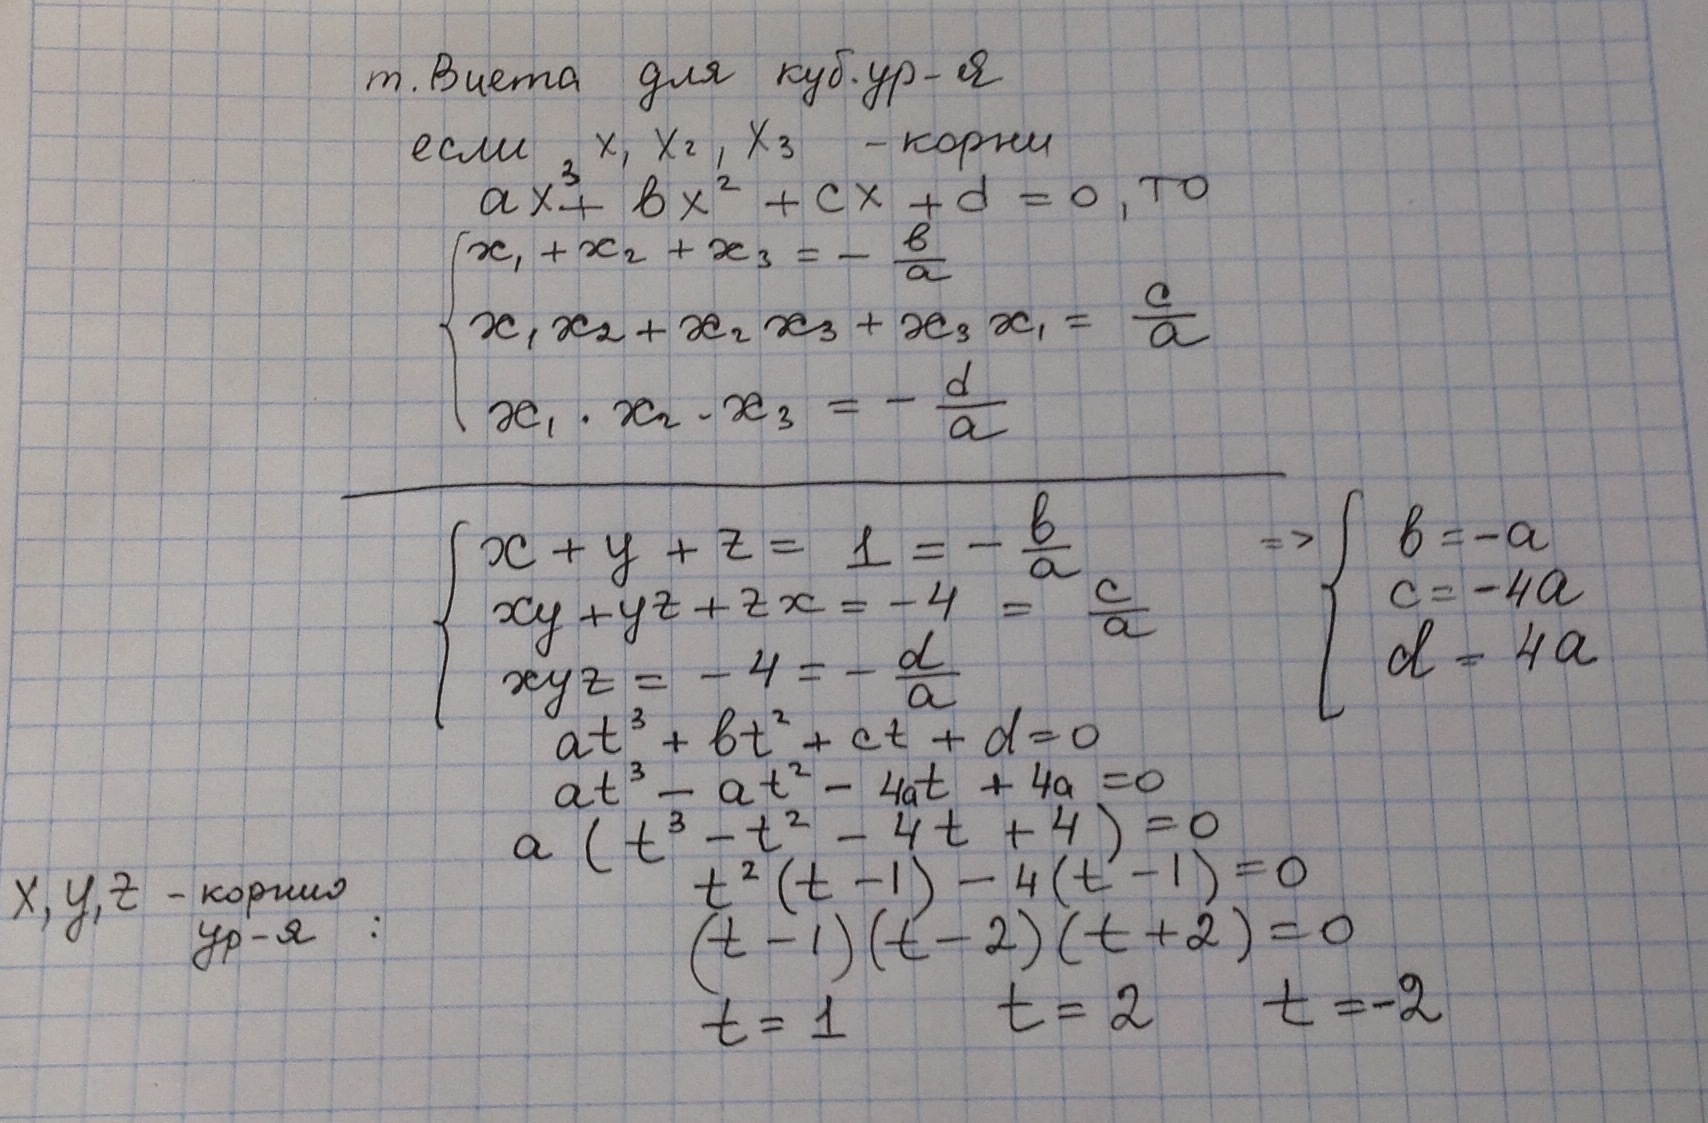 т. Виета для куб. ур-я
если x₁ x₂, x₃ - корни
ax³ + bx² + cx + d = 0, то
x₁ + x₂ + x₃ = - b/a
x₁x₂ + x₂x₃ + x₃x₁ = c/a
x₁ · x₂ · x₃ = - d/a
x + y + z = 1 = - b/a => b = -a
xy + yz + zx = -4 = c/a c = -4a
xyz = -4 = - d/a d = 4a
at³ + bt² + ct + d = 0
at³ - at² - 4at + 4a = 0
a (t³ - t² - 4t + 4) = 0
x, y, z - корни t²(t-1) - 4(t-1) = 0
ур-я : (t-1)(t-2)(t+2) = 0
t = 1 t = 2 t = -2